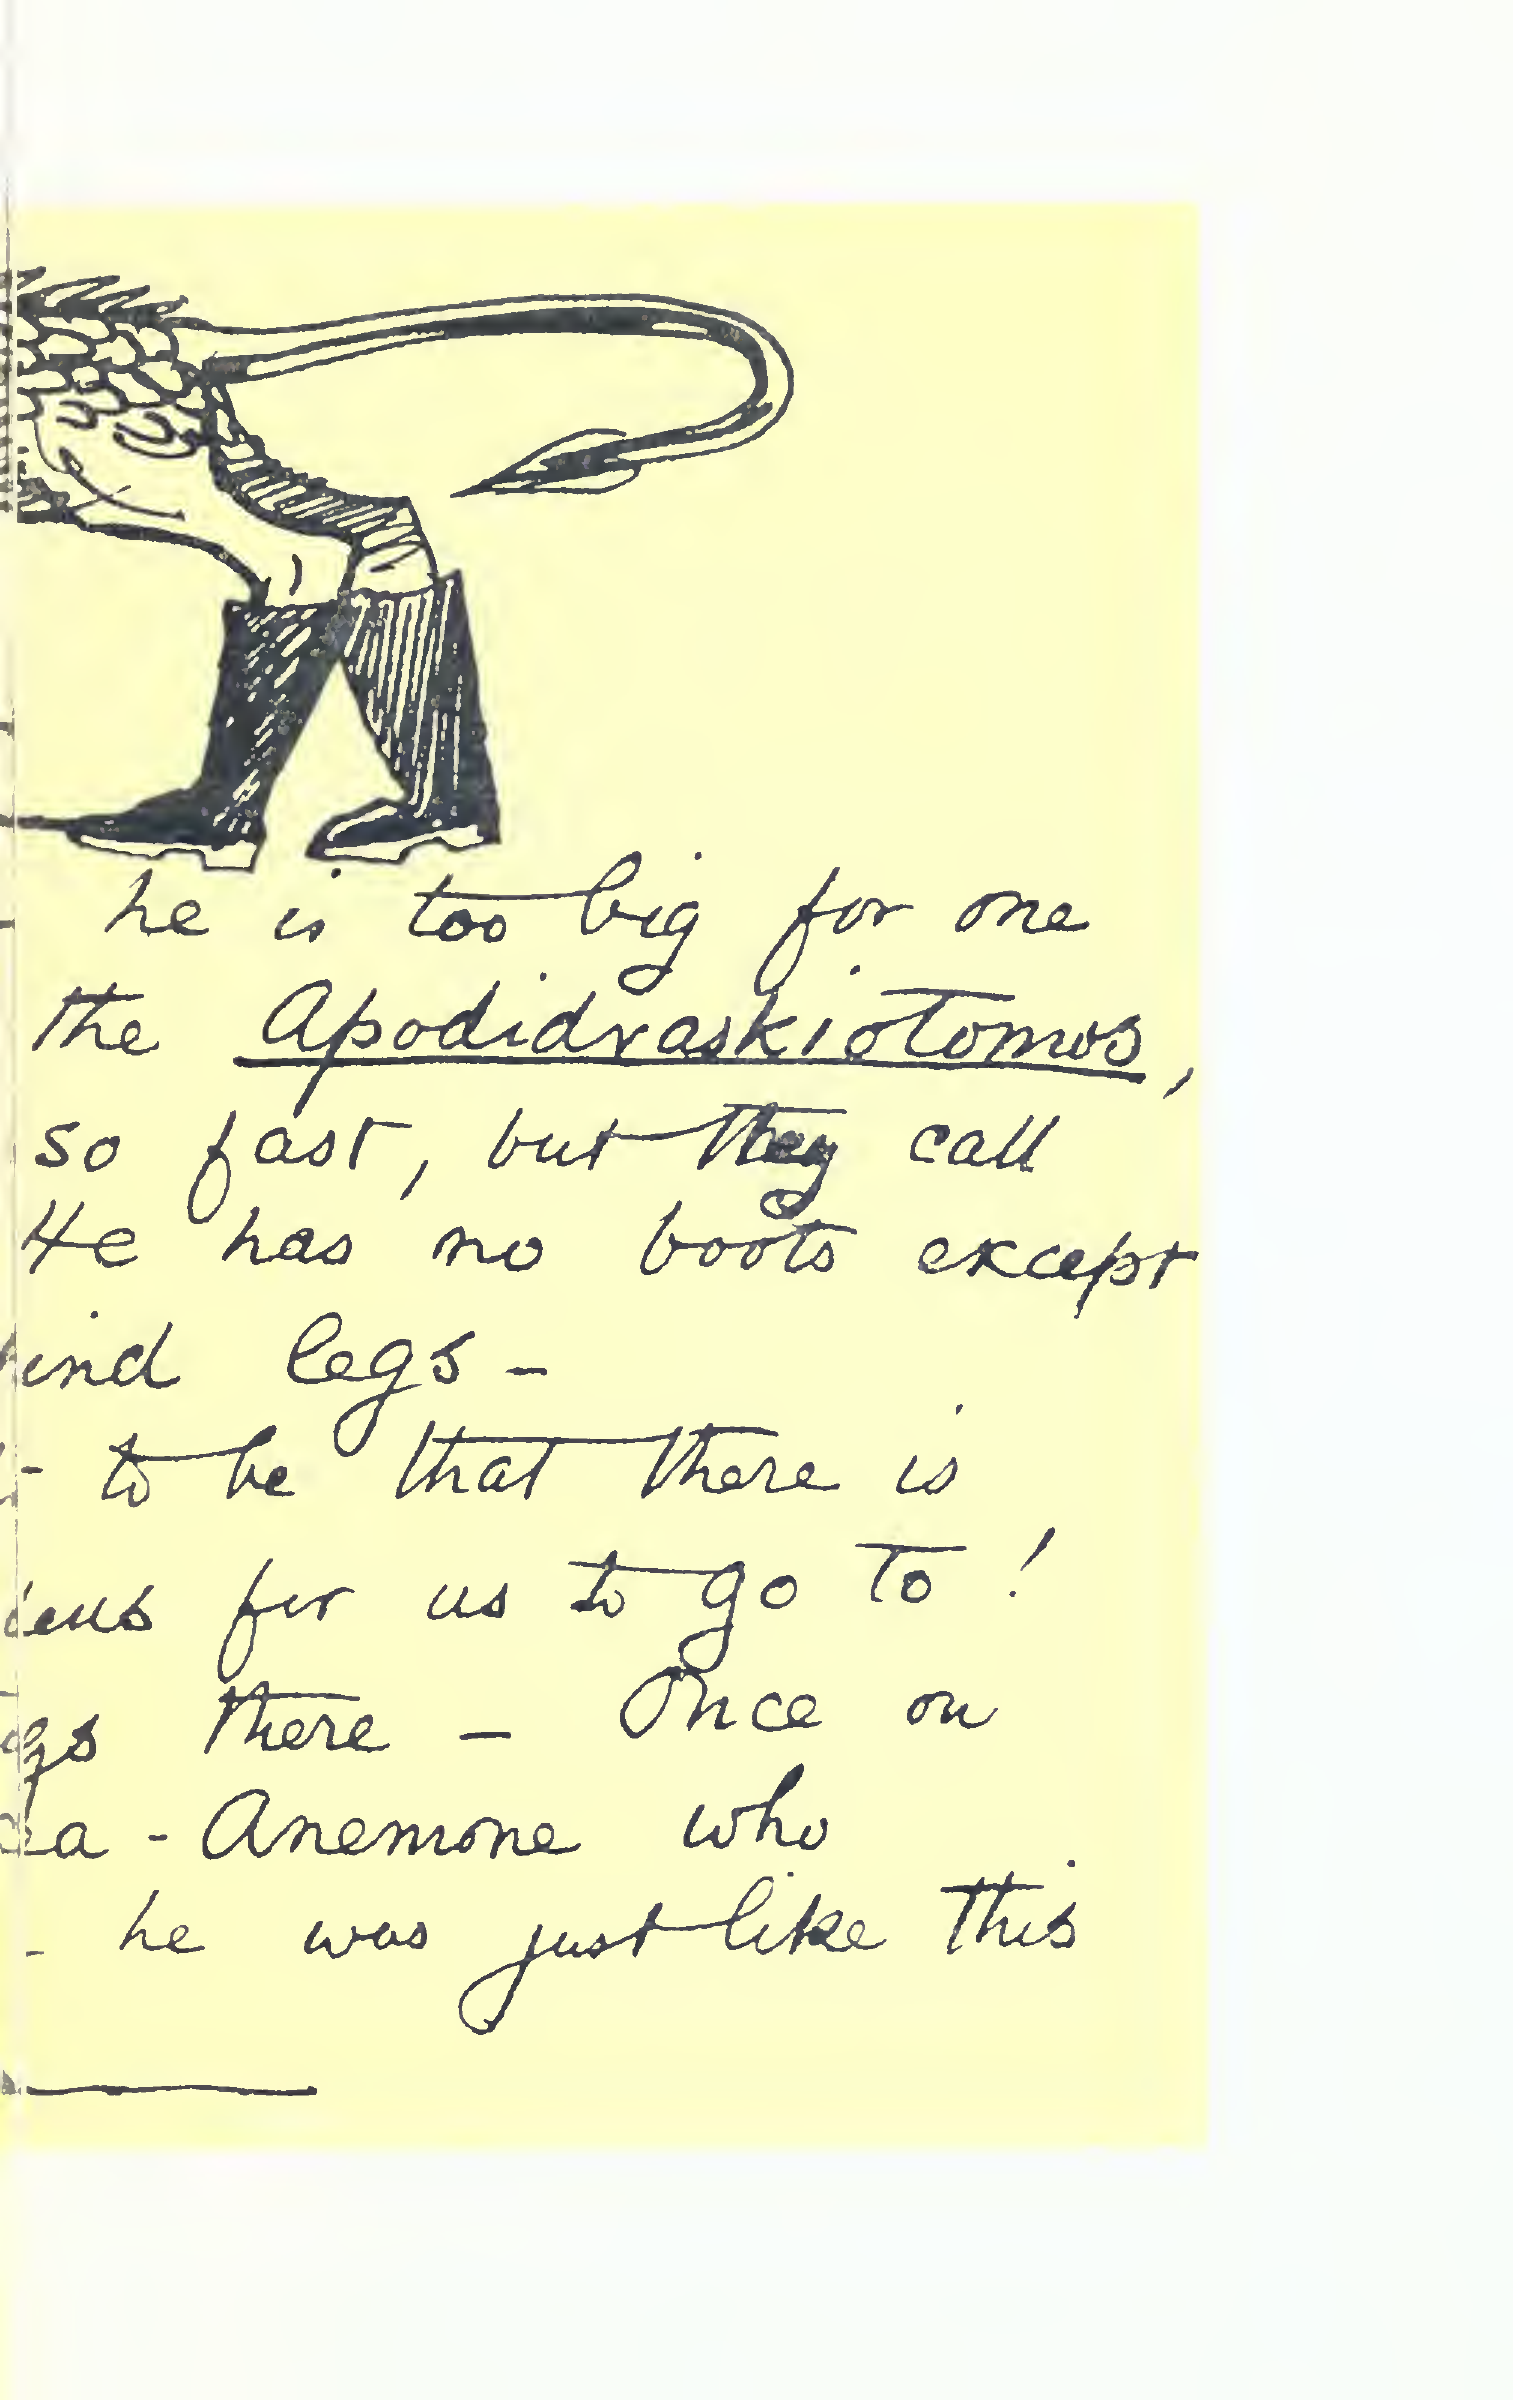 he is too big for one
the Apodidraskiotomos,
so fast, but they call
He has no boots except
hind legs -
- to be that there is
for us to go to!
there - Once on
- Anemone who
- he was just like this